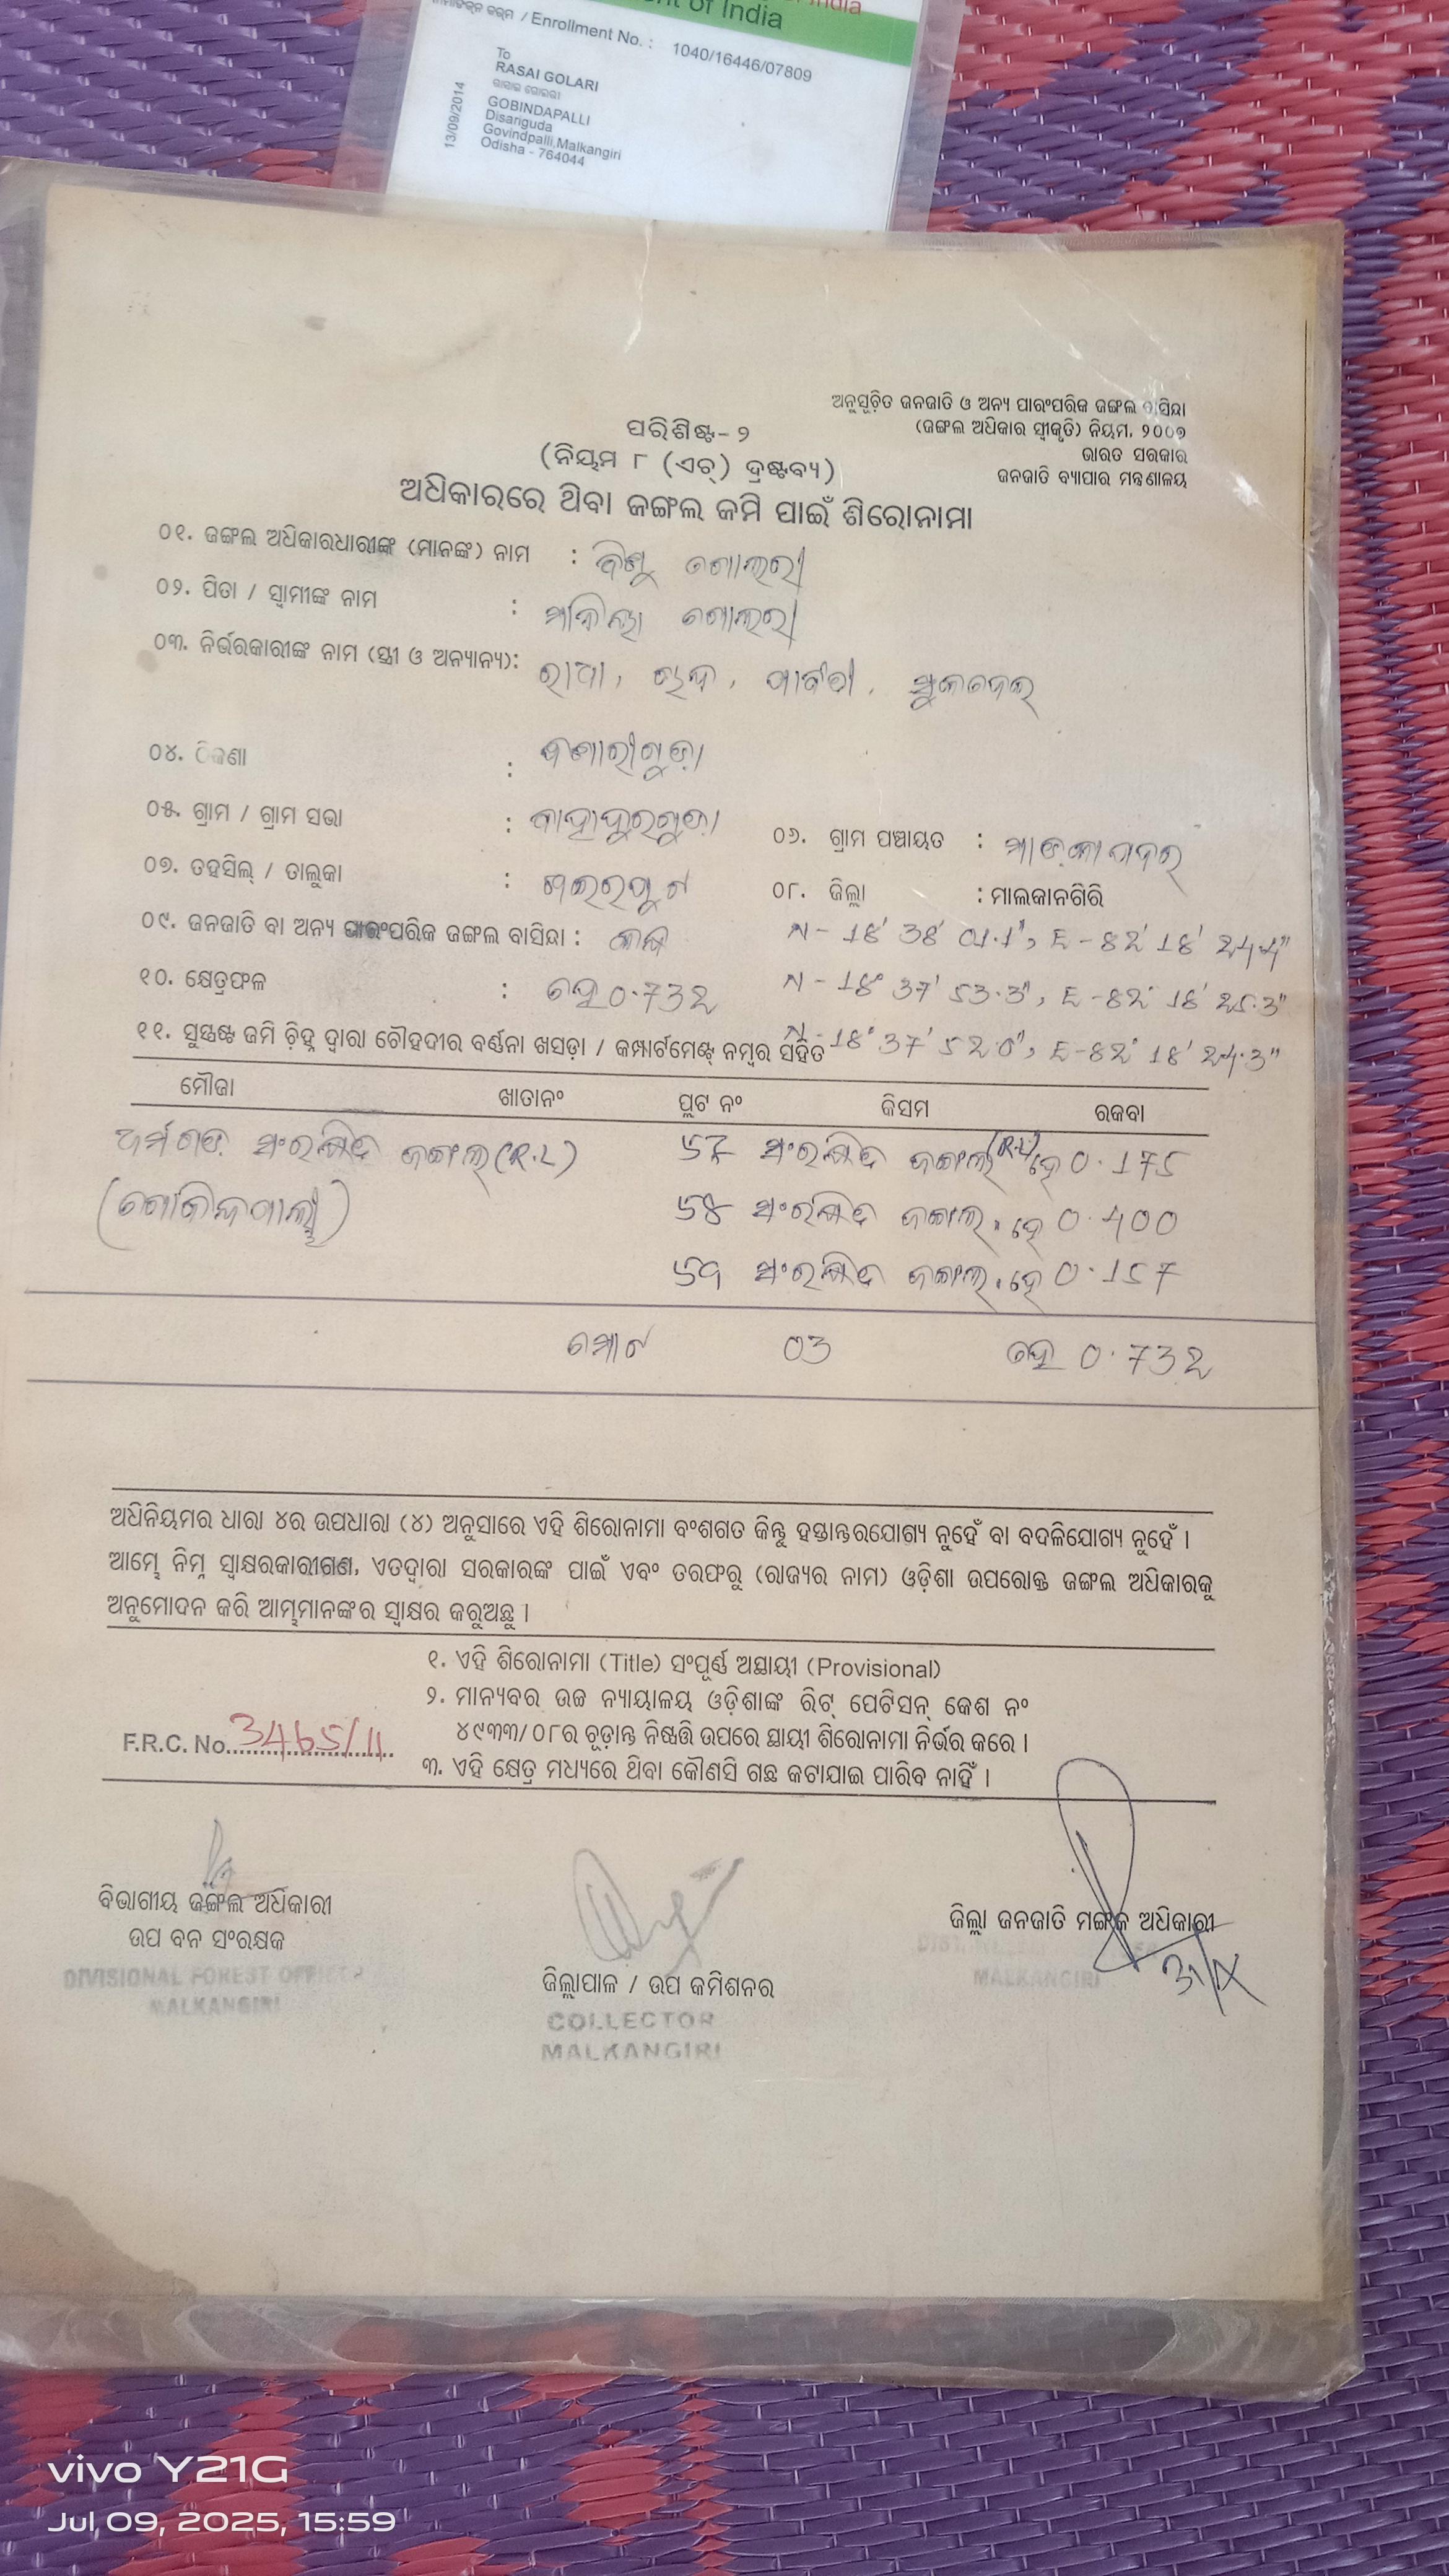 India
nt of India
/ Enrollment No. : 1040/16446/07809
To
RASAI GOLARI
GOBINDAPALLI
Disariguda
Govindpalli,Malkangiri
Odisha - 764044
13/09/2014
ଅନୁସୂଚିତ ଜନଜାତି ଓ ଅନ୍ୟ ପାରଂପରିକ ଜଙ୍ଗଲ ବାସିନ୍ଦା
(ଜଙ୍ଗଲ ଅଧିକାର ସ୍ୱୀକୃତି) ନିୟମ, ୨୦୦୭
ଭାରତ ସରକାର
ଜନଜାତି ବ୍ୟାପାର ମନ୍ତ୍ରଣାଳୟ
ପରିଶିଷ୍ଟ-୨
(ନିୟମ ୮ (ଏଚ୍) ଦ୍ରଷ୍ଟବ୍ୟ)
ଅଧିକାରରେ ଥିବା ଜଙ୍ଗଲ ଜମି ପାଇଁ ଶିରୋନାମା
୦୧. ଜଙ୍ଗଲ ଅଧିକାରଧାରୀଙ୍କ (ମାନଙ୍କ) ନାମ : ବିଶୁ ଗୋଲରୀ
୦୨. ପିତା / ସ୍ୱାମୀଙ୍କ ନାମ : ଗୋଲରୀ
୦୩. ନିର୍ଭରକାରୀଙ୍କ ନାମ (ସ୍ତ୍ରୀ ଓ ଅନ୍ୟାନ୍ୟ): ରାଧା,
୦୪. ଠିକଣା :
୦୫. ଗ୍ରାମ / ଗ୍ରାମ ସଭା : ବାହାଦୁରଗୁଡ଼ା ୦୬. ଗ୍ରାମ ପଞ୍ଚାୟତ :
୦୭. ତହସିଲ୍ / ତାଲୁକା : ଖଇରପୁଟ ୦୮. ଜିଲ୍ଲା : ମାଲକାନଗିରି
୦୯. ଜନଜାତି ବା ଅନ୍ୟ ପାରଂପରିକ ଜଙ୍ଗଲ ବାସିନ୍ଦା : N - 18° 38' 01.1", E - 82° 18' 24.4"
୧୦. କ୍ଷେତ୍ରଫଳ : ହେ 0.732 N - 18° 37' 53.3", E - 82° 18' 25.3"
୧୧. ସୁସ୍ପଷ୍ଟ ଜମି ଚିହ୍ନ ଦ୍ୱାରା ଚୌହଦୀର ବର୍ଣ୍ଣନା ଖସଡ଼ା / କମ୍ପାର୍ଟମେଣ୍ଟ୍ ନମ୍ବର ସହିତ N - 18° 37' 52.0", E - 82° 18' 24.3"
ମୌଜା ଖାତାନଂ ପ୍ଲଟ ନଂ କିସମ ରକବା
ସଂରକ୍ଷିତ ଜଙ୍ଗଲ (R.L) ସଂରକ୍ଷିତ ଜଙ୍ଗଲ (R.L) ହେ 0.175
(ଗୋବିନ୍ଦପାଲ୍ଲୀ) ସଂରକ୍ଷିତ ଜଙ୍ଗଲ. ହେ 0.400
ସଂରକ୍ଷିତ ଜଙ୍ଗଲ. ହେ 0.157
ମୋଟ 03 ହେ 0.732
ଅଧିନିୟମର ଧାରା ୪ର ଉପଧାରା (୪) ଅନୁସାରେ ଏହି ଶିରୋନାମା ବଂଶଗତ କିନ୍ତୁ ହସ୍ତାନ୍ତରଯୋଗ୍ୟ ନୁହେଁ ବା ବଦଳିଯୋଗ୍ୟ ନୁହେଁ ।
ଆମ୍ଭେ ନିମ୍ନ ସ୍ୱାକ୍ଷରକାରୀଗଣ, ଏତଦ୍ୱାରା ସରକାରଙ୍କ ପାଇଁ ଏବଂ ତରଫରୁ (ରାଜ୍ୟର ନାମ) ଓଡ଼ିଶା ଉପରୋକ୍ତ ଜଙ୍ଗଲ ଅଧିକାରକୁ
ଅନୁମୋଦନ କରି ଆମ୍ଭମାନଙ୍କର ସ୍ୱାକ୍ଷର କରୁଅଛୁ ।
୧. ଏହି ଶିରୋନାମା (Title) ସଂପୂର୍ଣ୍ଣ ଅସ୍ଥାୟୀ (Provisional)
୨. ମାନ୍ୟବର ଉଚ୍ଚ ନ୍ୟାୟାଳୟ ଓଡ଼ିଶାଙ୍କ ରିଟ୍ ପେଟିସନ୍ କେଶ ନଂ
୪୯୩୩/୦୮ର ଚୂଡ଼ାନ୍ତ ନିଷ୍ପତ୍ତି ଉପରେ ସ୍ଥାୟୀ ଶିରୋନାମା ନିର୍ଭର କରେ ।
୩. ଏହି କ୍ଷେତ୍ର ମଧ୍ୟରେ ଥିବା କୌଣସି ଗଛ କଟାଯାଇ ପାରିବ ନାହିଁ ।
F.R.C. No. 3465/11
ବିଭାଗୀୟ ଜଙ୍ଗଲ ଅଧିକାରୀ
ଉପ ବନ ସଂରକ୍ଷକ
DIVISIONAL FOREST OFFICER
MALKANGIRI
ଜିଲ୍ଲାପାଳ / ଉପ କମିଶନର
COLLECTOR
MALKANGIRI
ଜିଲ୍ଲା ଜନଜାତି ମଙ୍ଗଳ ଅଧିକାରୀ
MALKANGIRI
vivo Y21G
Jul 09, 2025, 15:59